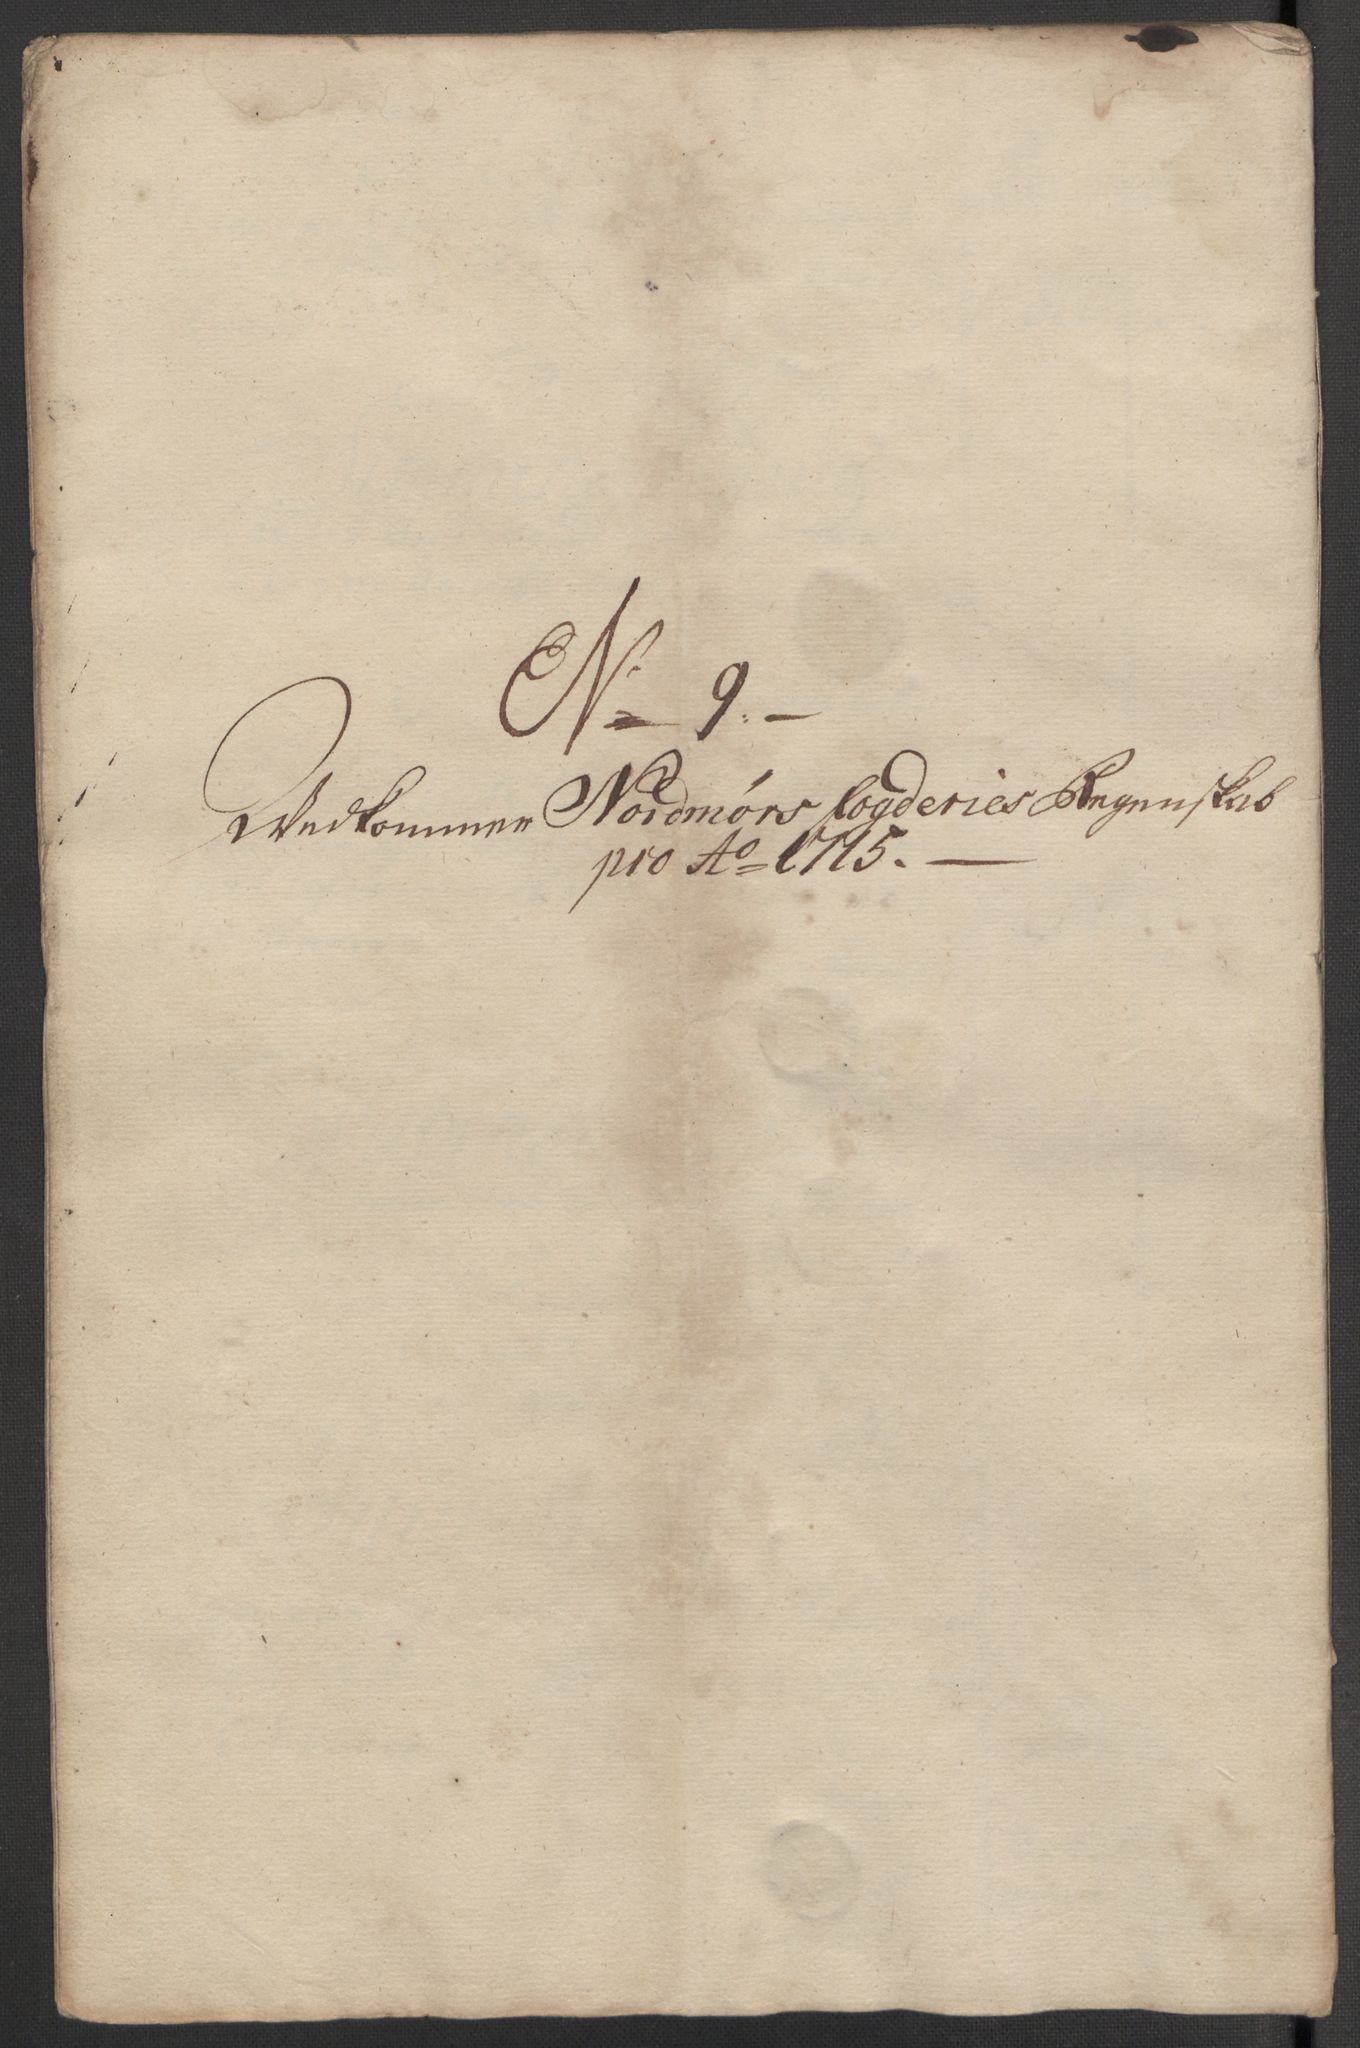 No 9. —
Vedkommer Nordmørs fogderies Regenskab
pro Ao 1715. —